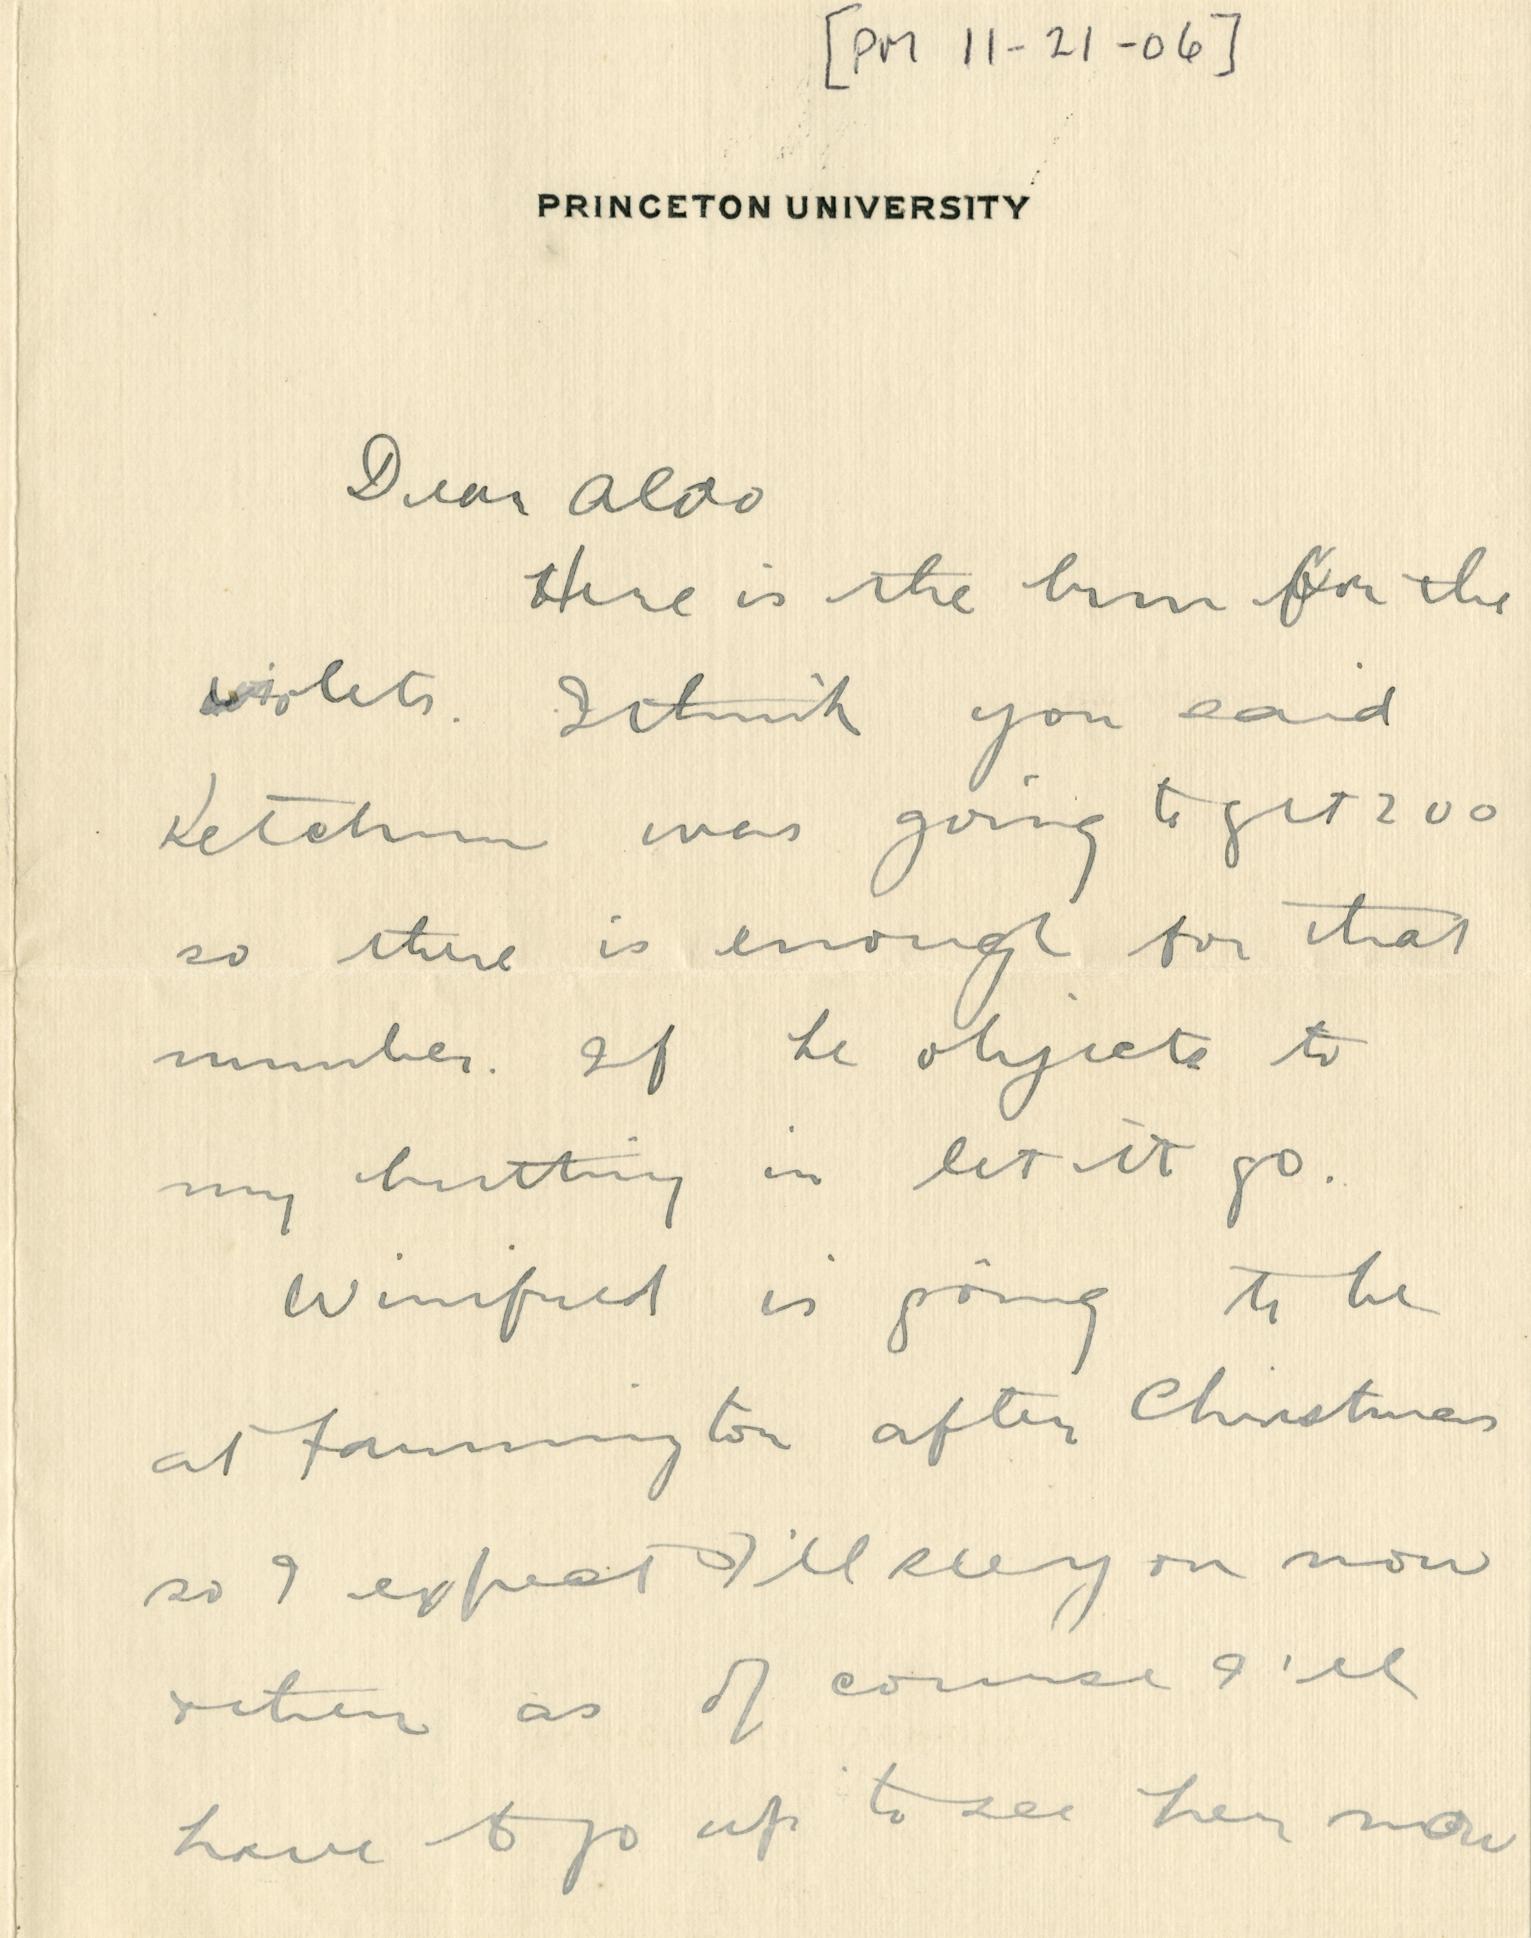 [PM 11-21-06]
PRINCETON UNIVERSITY
Dear Aldo
Here is the bum for the
violets. I think you said
Ketchum was going to get 200
so there is enough for that
number. If he objects to
my butting in let it go.
Winifred is going to be
at Farmington after Christmas
so I expect I'll see you now
& then as of course I'll
have to go up to see her now